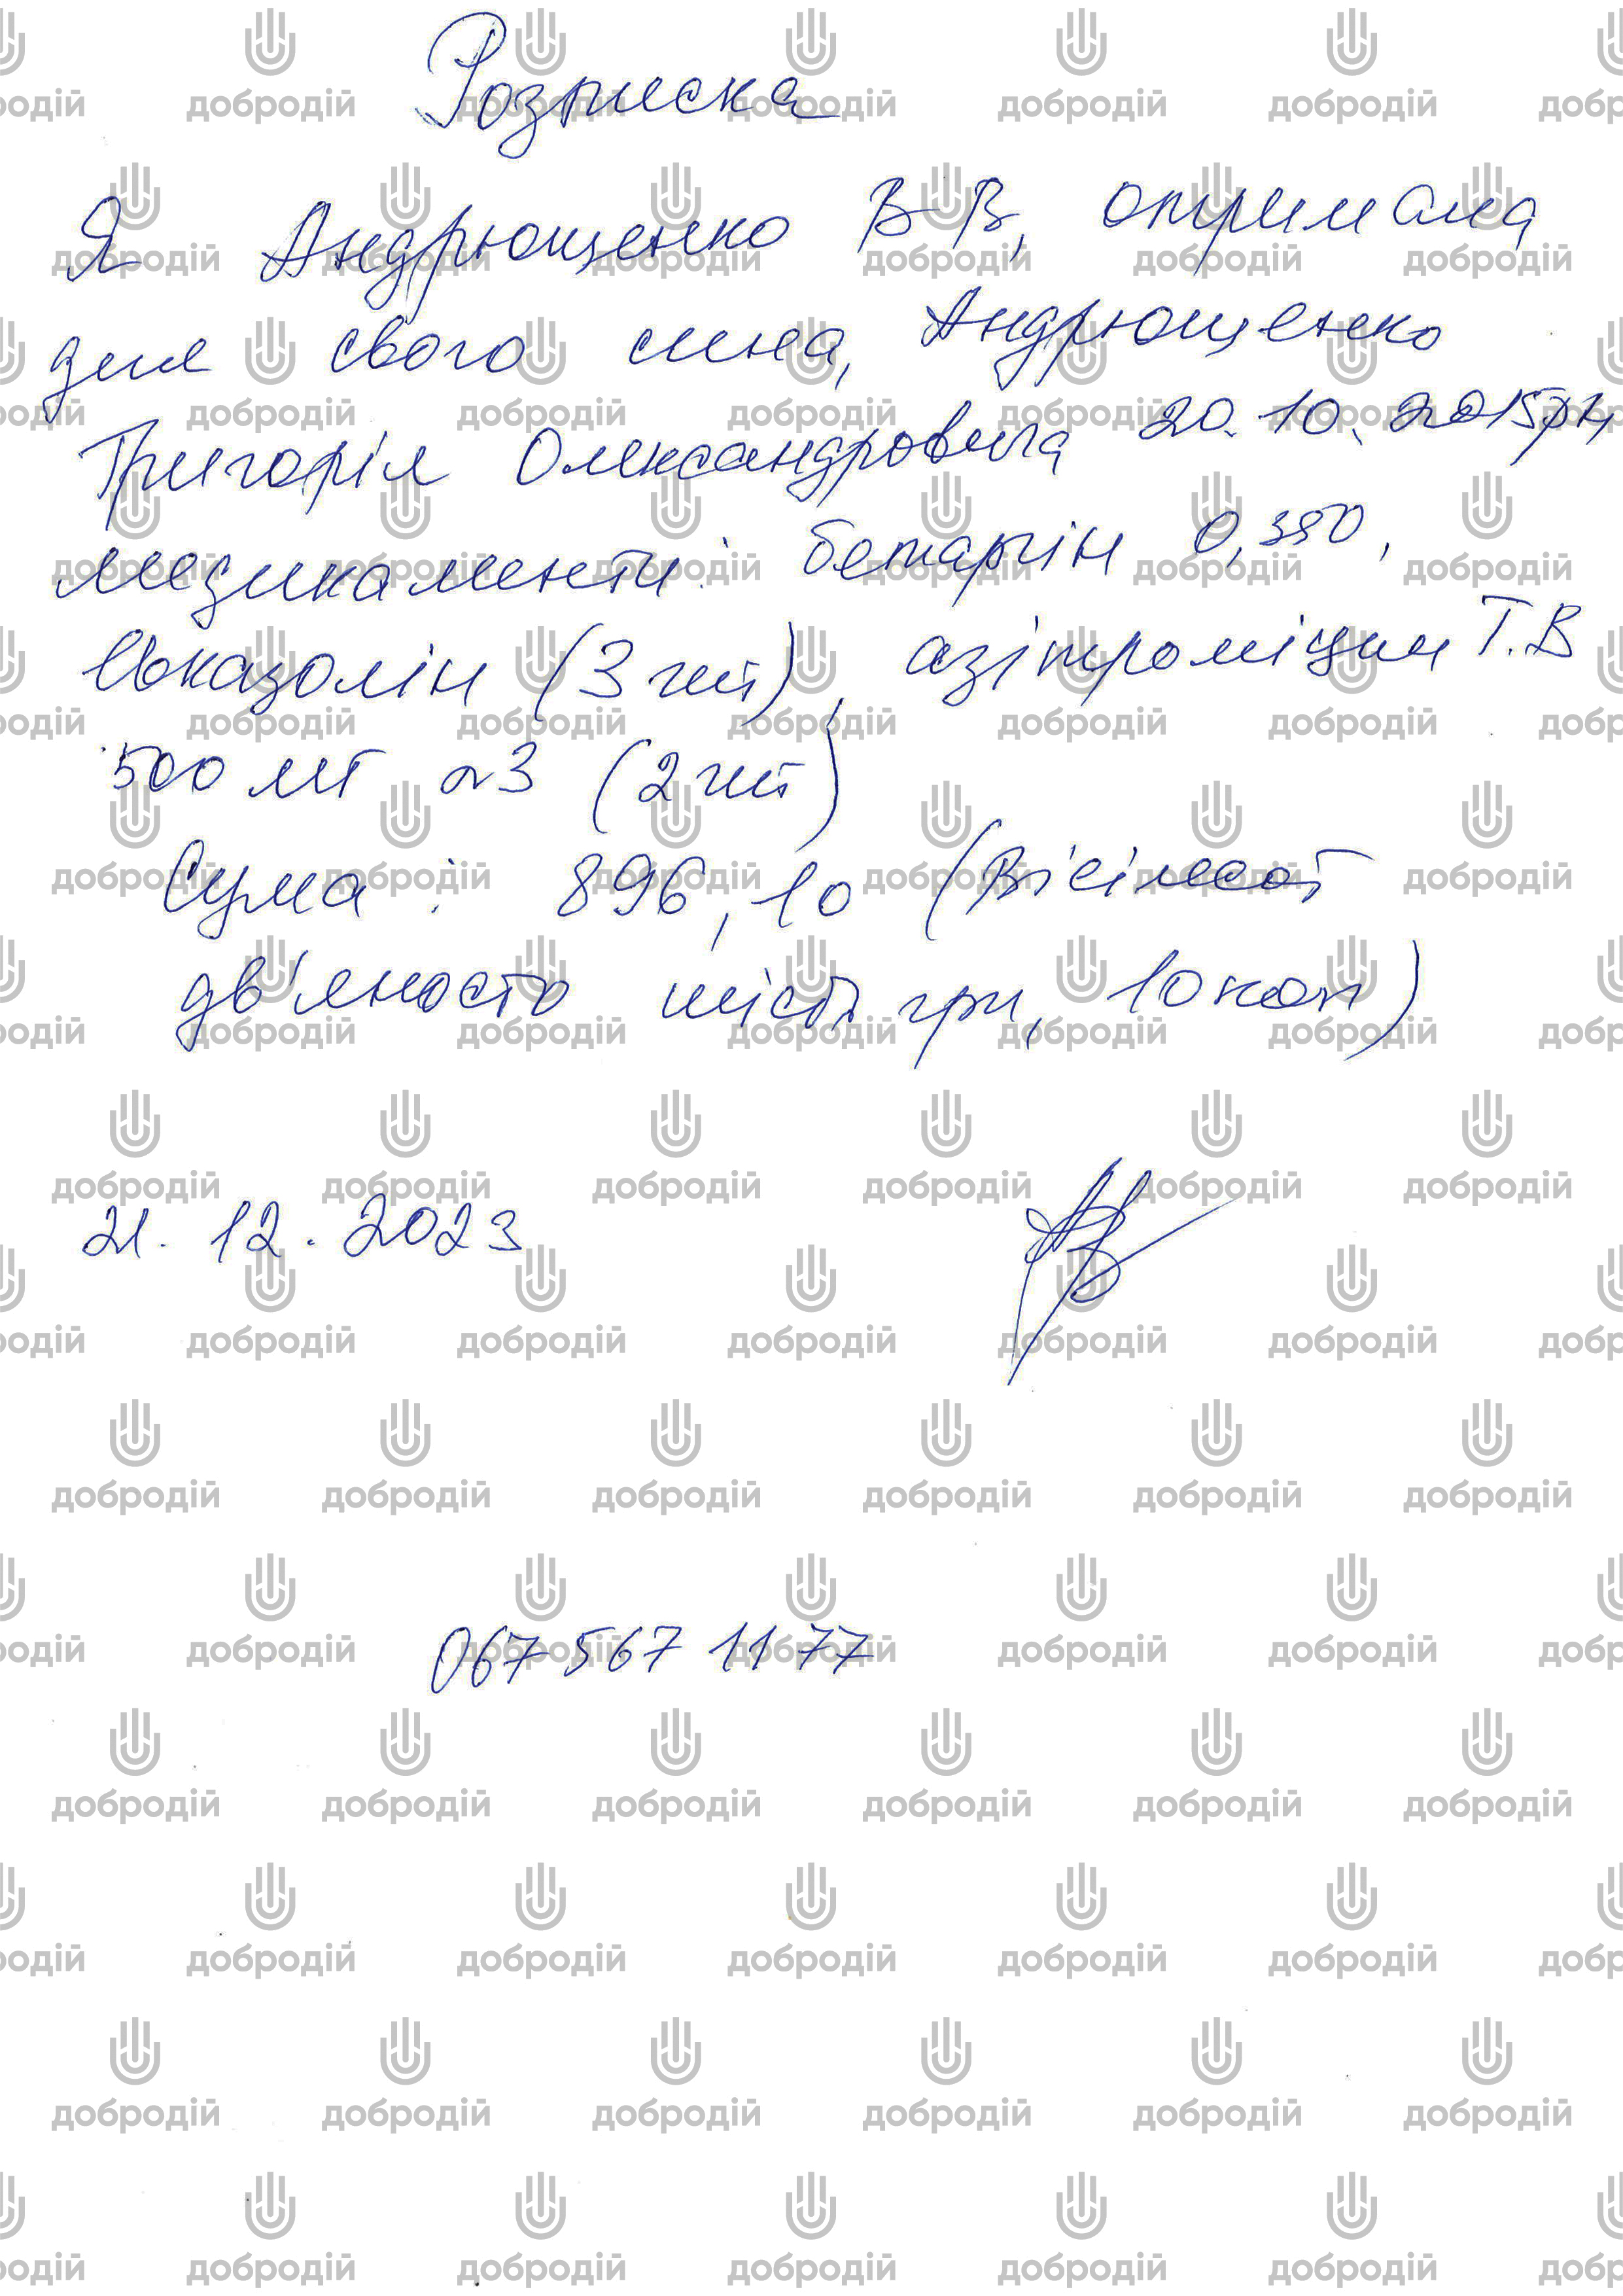 Розписка
Я Андрющенко В В, отримала
для свого сина, Андрющенко
Григорія Олександровича 20.10.2015рн
медикаменти: бетаргін 0,350,
Євказолін (3 шт), азітроміцин Т.В
500 мг №3 (2 шт)
Сума: 896,10 (Вісімсот
дев'яносто шість грн, 10 коп)
21.12.2023
067 567 11 77
добродій